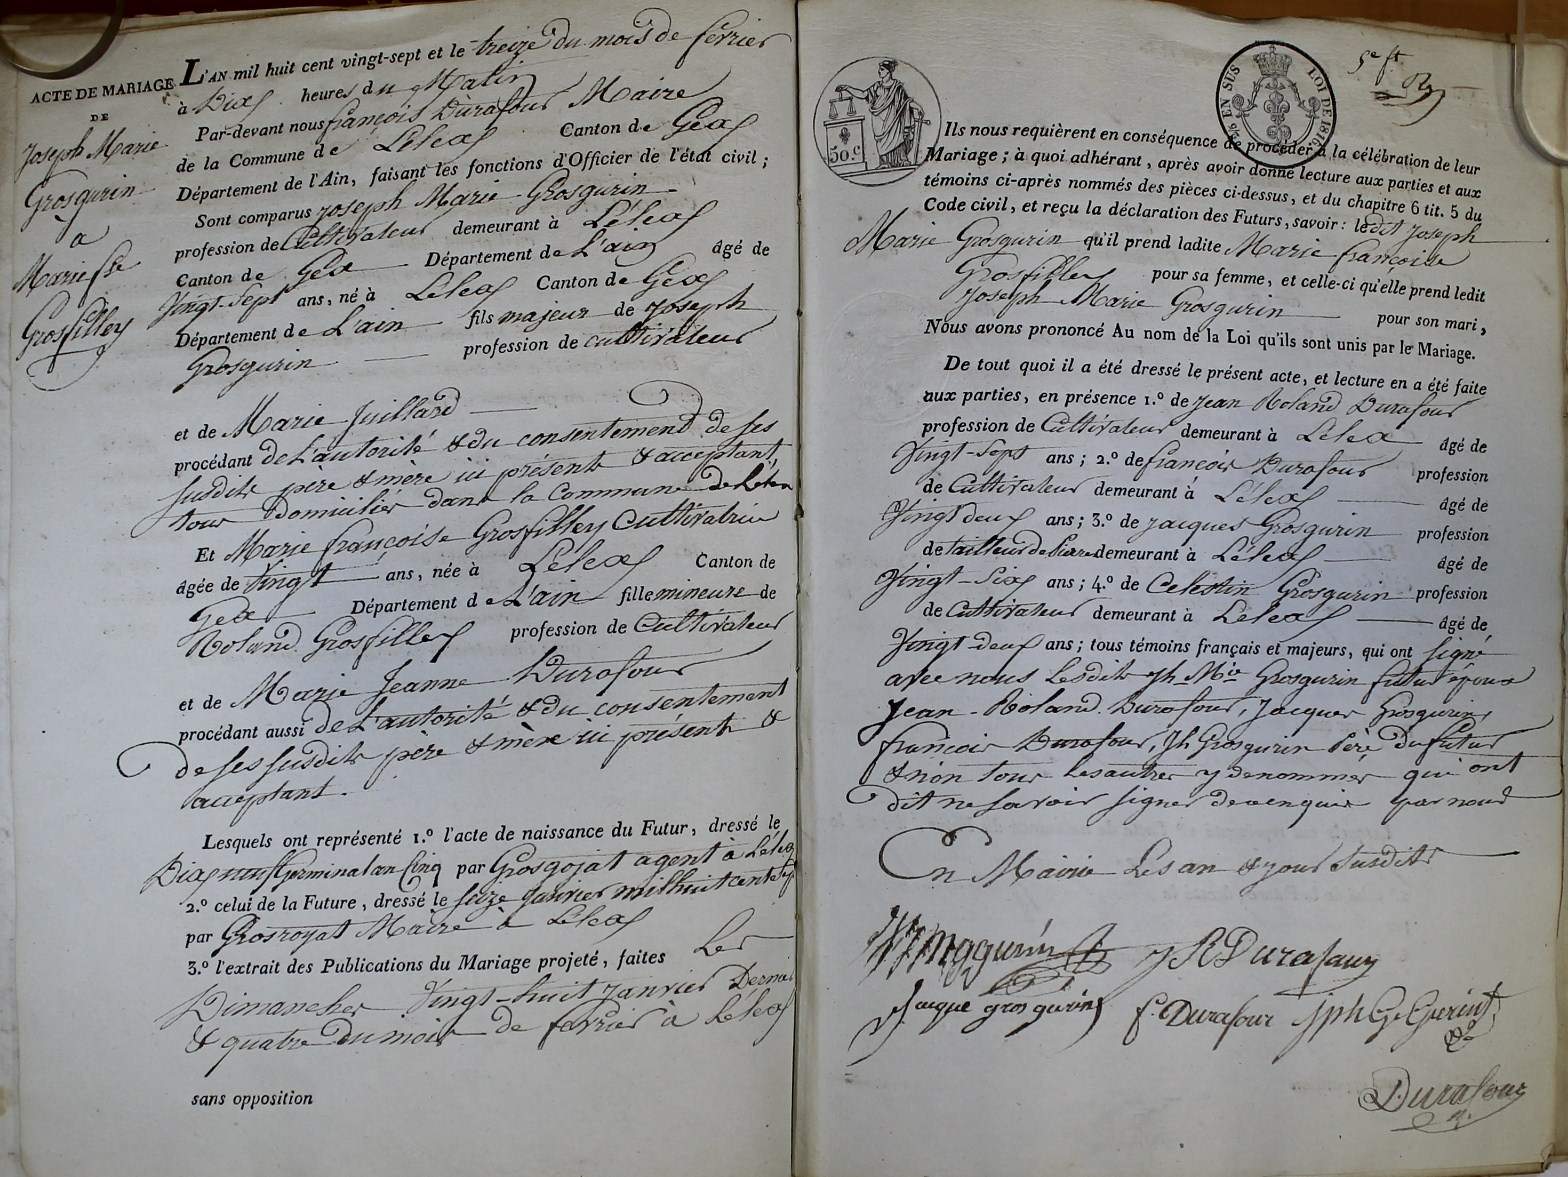 ACTE DE MARIAGE
DE
Joseph Marie
Grosgurin
a
Marie fse
Grosfilley
L'AN mil huit cent vingt-sept et le treize du mois de fevrier
à Dix heures du Matin
Par-devant nous françois Durafour Maire
de la Commune de Lélex Canton de Gex
Département de l'Ain, faisant les fonctions d'Officier de l'état civil;
Sont comparus joseph Marie Grosgurin
profession de Cultivateur demeurant à Lélex
Canton de Gex Département de L'ain âgé de
Vingt-Sept ans, né à Lelex Canton de Gex
Département de L'ain fils majeur de Joseph
Grosgurin profession de cultivateur
et de Marie Juillard
procédant de L'autorité & du consentement de ses
susdits père & mère ici présents & acceptant,
tous domiciliés dans la Commune de Lélex
Et Marie françoise Grosfilley Cultivatrice
âgée de Vingt ans, née à Lelex Canton de
Gex Département de L'ain fille mineure de
Roland Grosfilley profession de Cultivateur
et de Marie Jeanne Durafour
procédant aussi de L'autorité & du consentement
de ses susdits père & mère ici présents &
acceptant.
Lesquels ont représenté 1.º l'acte de naissance du Futur, dressé le
Dix neuf Germinal an Cinq par Grosgojat agent à Lélex
2.º celui de la Future, dressé le seize Janvier mil huit cent sept
par Grosroyat Maire à Lelex
3.º l'extrait des Publications du Mariage projeté, faites Les
Dimanches Vingt-huit janvier Dernier
& quatre du mois de favrier à Lelex
sans opposition
50 c.
EN SUS
LOI DE
5e ft
Ils nous requièrent en conséquence de procéder à la célébration de leur
Mariage; à quoi adhérant, après avoir donné lecture aux parties et aux
témoins ci-après nommés des pièces ci-dessus, et du chapitre 6 tit. 5 du
Code civil, et reçu la déclaration des Futurs, savoir: ledit Joseph
Marie Grosgurin qu'il prend ladite Marie francoise
Grosfilley pour sa femme, et celle-ci qu'elle prend ledit
Joseph Marie Grosgurin pour son mari,
Nous avons prononcé Au nom de la Loi qu'ils sont unis par le Mariage.
De tout quoi il a été dressé le présent acte, et lecture en a été faite
aux parties, en présence 1.º de jean Roland Durafour
profession de Cultivateur demeurant à Lélex âgé de
Vingt-Sept ans; 2.º de françois Durafour profession
de Cultivateur demeurant à Lélex âgé de
Vingt deux ans; 3.º de jacques Grosgurin profession
de tailleur de Pierre demeurant à Lélex âgé de
Vingt-Six ans; 4.º de Celestin Grosgurin profession
de Cultivateur demeurant à Lelex âgé de
Vingt-deux ans; tous témoins français et majeurs, qui ont signé
avec nous Lesdits jh Mie Grosgurin futur époux
Jean-Roland Durafour, Jacques Grosgurin,
francois Durafour, Jh Grosgurin Père du futur
& non tous les autres y denommés qui ont
dit ne savoir signer de ce enquis par nous
En Mairie Les an & jour susdits
J R Durafour
Jacque gros gurin
f. Durafour
Jph G. Guerin
Durafour